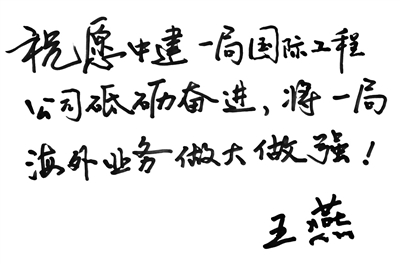 祝愿中建一局国际工程
公司砥砺奋进,将一局
海外业务做大做强!
王燕